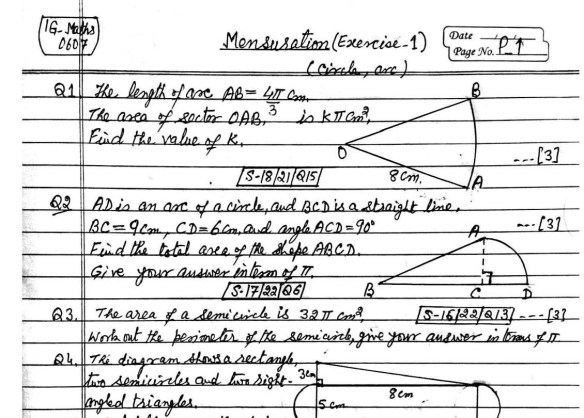 IG-Maths
0607
Mensuration (Exercise-1)
(circle, arc)
Date
Page No. P-1
Q1 The length of arc AB = 4π/3 cm.
The area of sector OAB, is Kπ cm²,
Find the value of K.
B
O
8cm.
A
---[3]
S-18/21/Q15
Q2 AD is an arc of a circle, and BCD is a straight line.
BC = 9cm, CD = 6cm, and angle ACD = 90°
---[3]
Find the total area of the shape ABCD.
Give your answer in term of π.
S-17/22/Q6
A
B
C
D
Q3. The area of a semicircle is 32π cm².
S-16/22/Q13 ---[3]
Work out the perimeter of the semicircle, give your answer in terms of π
Q4. The diagram shows a rectangle,
two semicircles and two right-
angled triangles.
3cm
8cm
5cm